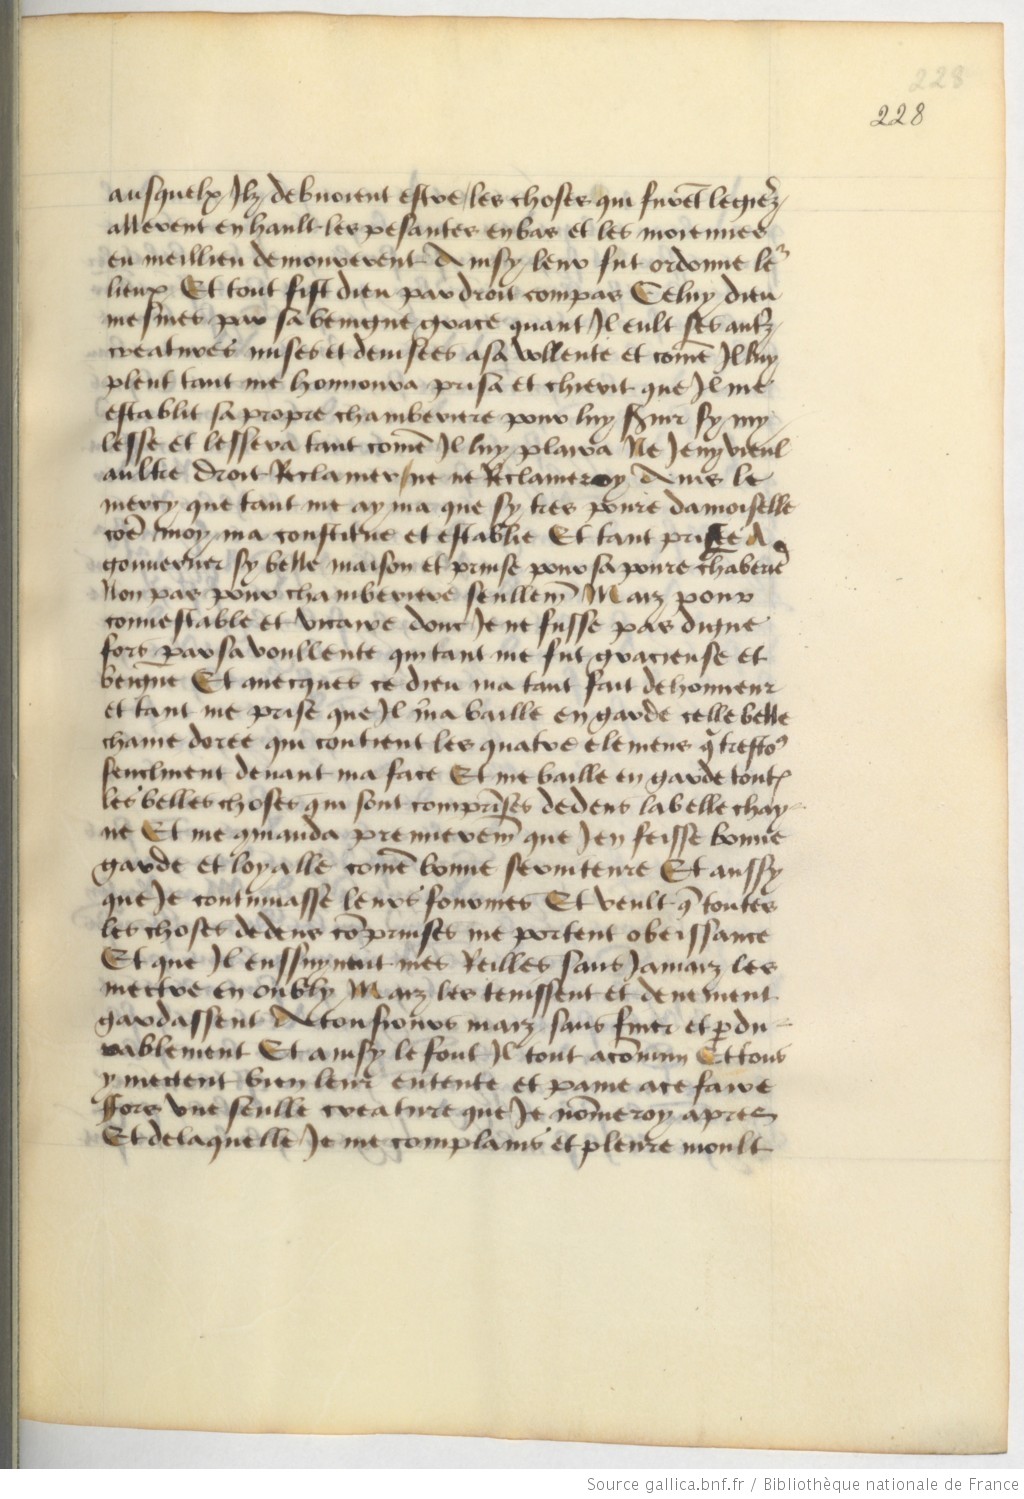 228
228
ausquelx Ilz debuoient estre / les choses qui furẽt legiẽz
allerent en hault les pesantes en bas et les moiennes
en meillieu demourerent Ainsy leur fut ordonne le
lieux Et tout fist dieu par droit compas Celuy dieu
mesmes par sa benigne grace quant Il eult ses autz
creatures mises et deuisees a sa vollente et comẽ Il luy
pleut tant me honnoura prisa et chierit que Il me
establit sa propre chamberiere pour luy seruir sy my
lesse et lessera tant comẽ Il luy plaira Ne Je ny vieul
aultre droit Reclamer / ne ne Reclameroy Ains le
mercy que tant me ayma que sy tres poure damoiselle
coẽ moy ma constitue et establie Et tant prisee A
gouuerner sy belle maison et prinse pour sa poure chãberiẽ
Non pas pour chamberiere seullemẽ Maiz pour
connestable et vicaire dont Je ne fusse pas digne
fors par sa voullente qui tant me fut gracieuse et
benigne Et auecques ce dieu ma tant fait de honneur
et tant me prise que Il ma baille en garde celle belle
chaine doree qui contient les quatre elemens
enclinent deuant ma face Et me baille en garde tout
les belles choses qui sont comprises dedens la belle chay
ne Et me cõmanda premierem̃ que Jen feisse bonne
garde et loyalle comẽ bonne seruiteure Et aussy
que Je continuasse leurs fourmes Et veult q̃ toutes
les choses dedens cõprinses me portent obeissance
Et que Il enssuyuent mes Reilles sans Jamaiz les
mectre en oubly Maiz les tenissent et deuement
gardassent A tousiours maiz sans finer et pdu
rablement Et ainsy le font Il tout acõmun Et tous
y mectent bien leur entente et paine a ce faire
ffors vne seulle creature que Je nõmeroy apres
Et de laquelle Je me complains et pleure moult
Source gallica.bnf.fr / Bibliothèque nationale de France